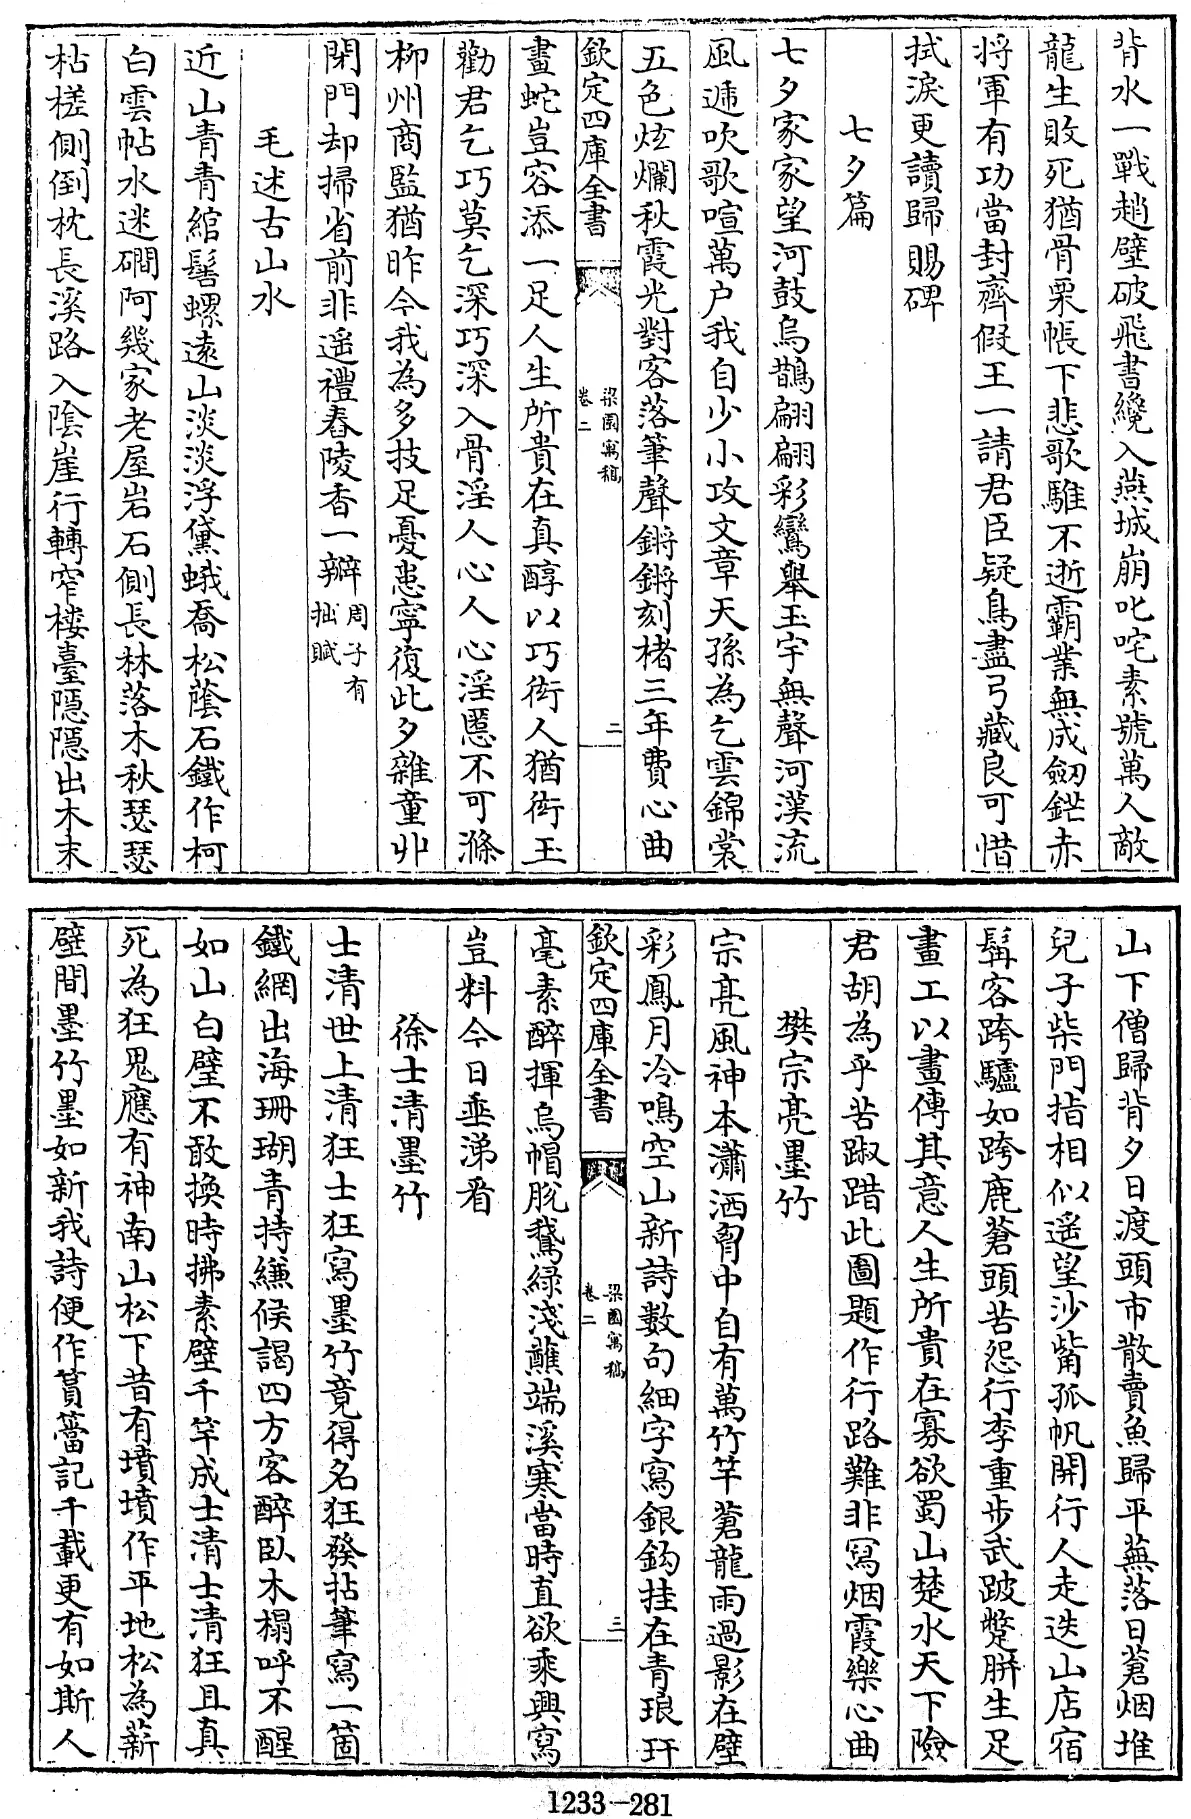 背水一戰趙壁破飛書纔入燕城崩叱咤素號萬人敵
龍生敗死猶骨栗帳下悲歌騅不逝霸業無成劒鋩赤
將軍有功當封齊假王一請君臣疑鳥盡弓藏良可惜
拭淚更讀歸賜碑
七夕篇
七夕家家望河鼓烏鵲翩翩彩鸞舉玉宇無聲河漢流
風遞吹歌喧萬户我自少小攻文章天孫為乞雲錦裳
五色炫爛秋霞光對客落筆聲鏘鏘刻楮三年費心曲
欽定四庫全書
梁園寓稿
卷二
二
畫蛇豈容添一足人生所貴在真醇以巧衒人猶衒玉
勸君乞巧莫乞深巧深入骨淫人心人心淫慝不可滌
柳州商監猶昨今我為多技足憂患寧復此夕雜童丱
閉門却掃省前非遥禮舂陵香一瓣周子有拙賦
毛述古山水
近山青青綰髻螺遠山淡淡浮黛蛾喬松蔭石鐵作柯
白雲帖水迷磵阿幾家老屋岩石側長林落木秋瑟瑟
枯槎側倒枕長溪路入陰崖行轉窄楼臺隱隱出木末
山下僧歸背夕日渡頭市散賣魚歸平蕪落日蒼烟堆
兒子柴門指相似遥望沙觜孤帆開行人走迭山店宿
髯客跨驢如跨鹿蒼頭苦怨行李重步武跛蹩胼生足
畫工以畫傳其意人生所貴在寡欲蜀山楚水天下險
君胡為乎苦踧踖此圖題作行路難非寫烟霞樂心曲
樊宗亮墨竹
宗亮風神本瀟洒胷中自有萬竹竿蒼龍雨過影在壁
彩鳳月冷鳴空山新詩數句細字寫銀鈎挂在青琅玕
欽定四庫全書
梁園寓稿
卷二
三
毫素醉揮烏帽脫鵞緑淺蘸端溪寒當時直欲乘興寫
豈料今日垂涕看
徐士清墨竹
士清世上清狂士狂寫墨竹竟得名狂發拈筆寫一箇
鐵網出海珊瑚青持縑候謁四方客醉臥木榻呼不醒
如山白璧不敢換時拂素壁千竿成士清士清狂且真
死為狂鬼應有神南山松下昔有墳墳作平地松為薪
壁間墨竹墨如新我詩便作篔簹記千載更有如斯人
1233-281